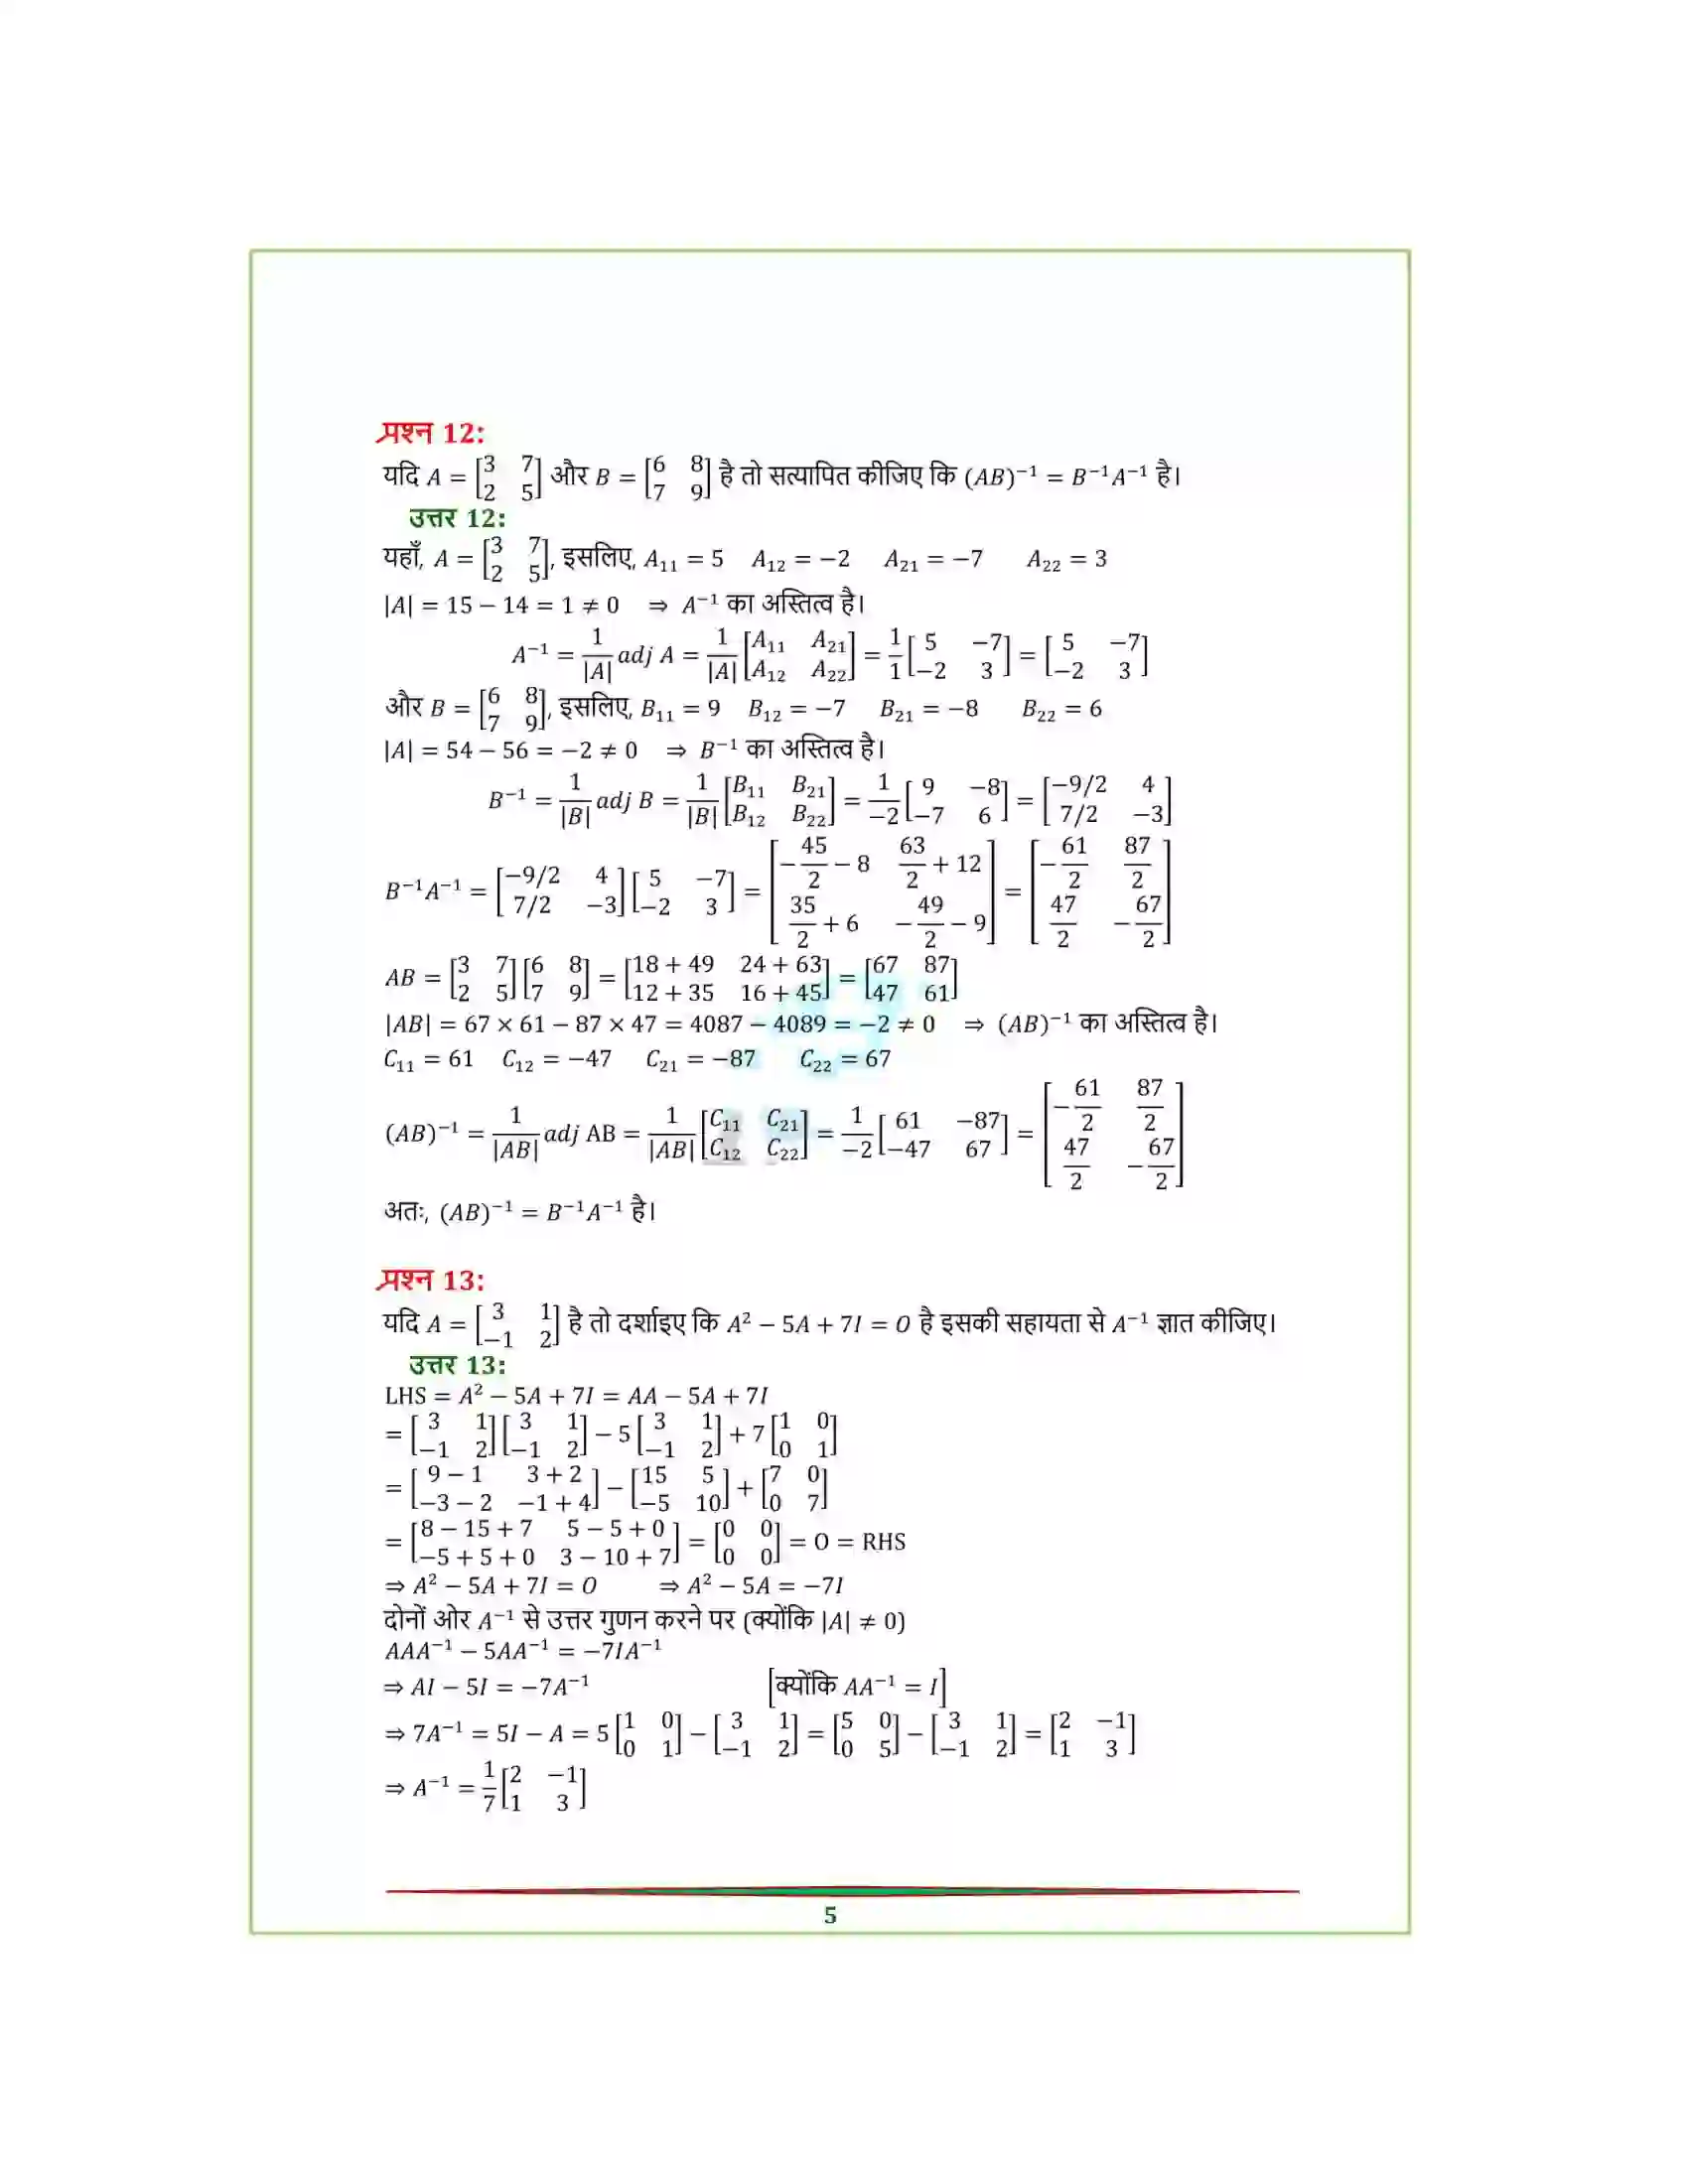 प्रश्न 12:
यदि A = [3 7; 2 5] और B = [6 8; 7 9] है तो सत्यापित कीजिए कि (AB)⁻¹ = B⁻¹A⁻¹ है।
उत्तर 12:
यहाँ, A = [3 7; 2 5], इसलिए, A₁₁ = 5 A₁₂ = −2 A₂₁ = −7 A₂₂ = 3
|A| = 15 − 14 = 1 ≠ 0 ⇒ A⁻¹ का अस्तित्व है।
A⁻¹ = 1/|A| adj A = 1/|A| [A₁₁ A₂₁; A₁₂ A₂₂] = 1/1 [5 −7; −2 3] = [5 −7; −2 3]
और B = [6 8; 7 9], इसलिए, B₁₁ = 9 B₁₂ = −7 B₂₁ = −8 B₂₂ = 6
|A| = 54 − 56 = −2 ≠ 0 ⇒ B⁻¹ का अस्तित्व है।
B⁻¹ = 1/|B| adj B = 1/|B| [B₁₁ B₂₁; B₁₂ B₂₂] = 1/−2 [9 −8; −7 6] = [−9/2 4; 7/2 −3]
B⁻¹A⁻¹ = [−9/2 4; 7/2 −3] [5 −7; −2 3] = [−45/2 − 8 63/2 + 12; 35/2 + 6 −49/2 − 9] = [−61/2 87/2; 47/2 −67/2]
AB = [3 7; 2 5] [6 8; 7 9] = [18 + 49 24 + 63; 12 + 35 16 + 45] = [67 87; 47 61]
|AB| = 67 × 61 − 87 × 47 = 4087 − 4089 = −2 ≠ 0 ⇒ (AB)⁻¹ का अस्तित्व है।
C₁₁ = 61 C₁₂ = −47 C₂₁ = −87 C₂₂ = 67
(AB)⁻¹ = 1/|AB| adj AB = 1/|AB| [C₁₁ C₂₁; C₁₂ C₂₂] = 1/−2 [61 −87; −47 67] = [−61/2 87/2; 47/2 −67/2]
अतः, (AB)⁻¹ = B⁻¹A⁻¹ है।
प्रश्न 13:
यदि A = [3 1; −1 2] है तो दर्शाइए कि A² − 5A + 7I = O है इसकी सहायता से A⁻¹ ज्ञात कीजिए।
उत्तर 13:
LHS = A² − 5A + 7I = AA − 5A + 7I
= [3 1; −1 2] [3 1; −1 2] − 5 [3 1; −1 2] + 7 [1 0; 0 1]
= [9 − 1 3 + 2; −3 − 2 −1 + 4] − [15 5; −5 10] + [7 0; 0 7]
= [8 − 15 + 7 5 − 5 + 0; −5 + 5 + 0 3 − 10 + 7] = [0 0; 0 0] = O = RHS
⇒ A² − 5A + 7I = O ⇒ A² − 5A = −7I
दोनों ओर A⁻¹ से उत्तर गुणन करने पर (क्योंकि |A| ≠ 0)
AAA⁻¹ − 5AA⁻¹ = −7IA⁻¹
⇒ AI − 5I = −7A⁻¹ [क्योंकि AA⁻¹ = I]
⇒ 7A⁻¹ = 5I − A = 5 [1 0; 0 1] − [3 1; −1 2] = [5 0; 0 5] − [3 1; −1 2] = [2 −1; 1 3]
⇒ A⁻¹ = 1/7 [2 −1; 1 3]
5